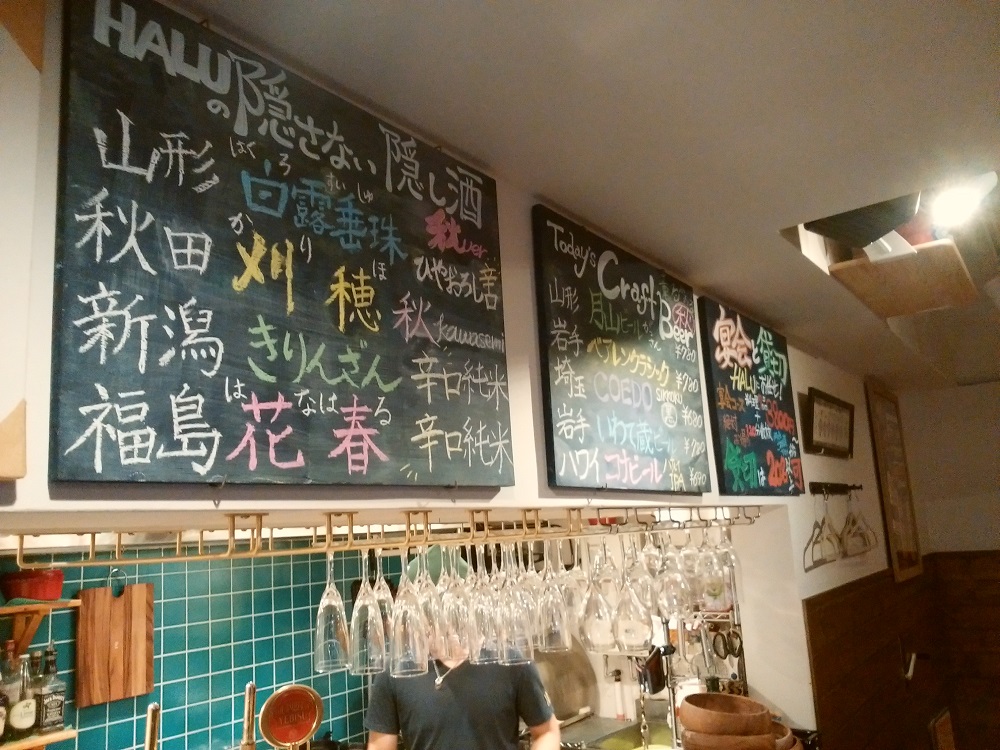 HALUの隠さない隠し酒
秋ver
山形 白露垂珠 ひやおろし辛口
はくろすいしゅ
秋田 刈穂 秋kawasemi
かりほ
新潟 きりんざん 辛口純米
福島 花春 辛口純米
はなはる
Today's Craft Beer
山形 月山ビール ¥780
岩手 ベアレンクラシック ¥780
埼玉 COEDO ¥680
岩手 いわて蔵ビール ¥780
ハワイ コナビール IPA ¥690
宴会と貸切
HALU
貸切は20名
YEBISU